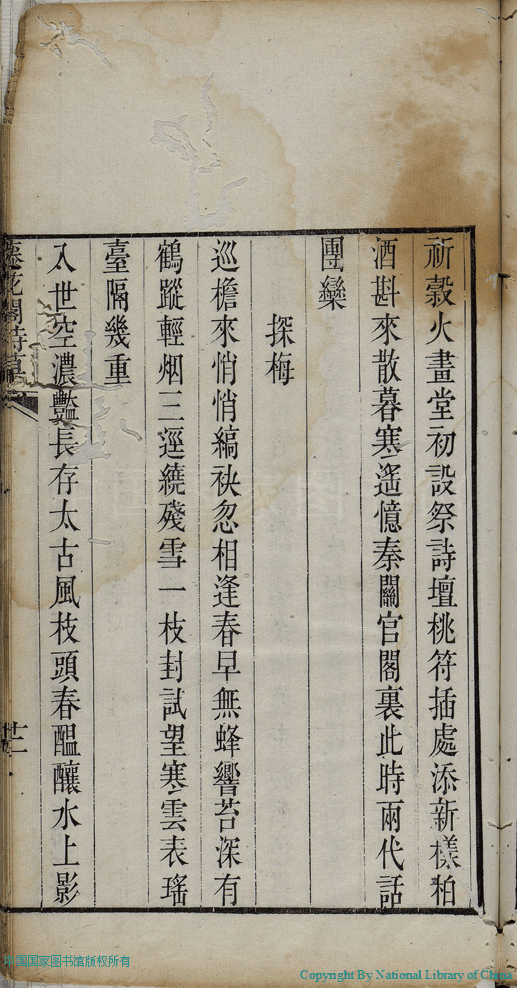 祈穀火畫堂初設祭詩壇桃符插處添新樣柏
酒斟來散暮寒遥憶秦關官閣裏此時兩代話
團欒
探梅
巡檐來悄悄縞袂忽相逢春早無蜂響苔深有
鶴蹤輕烟三逕繞殘雪一枝封試望寒雲表瑤
臺隔幾重
入世空濃艷長存太古風枝頭春醞釀水上影
花閣詩草
廿二
中国国家图书馆版权所有
Copyright By National Library of China